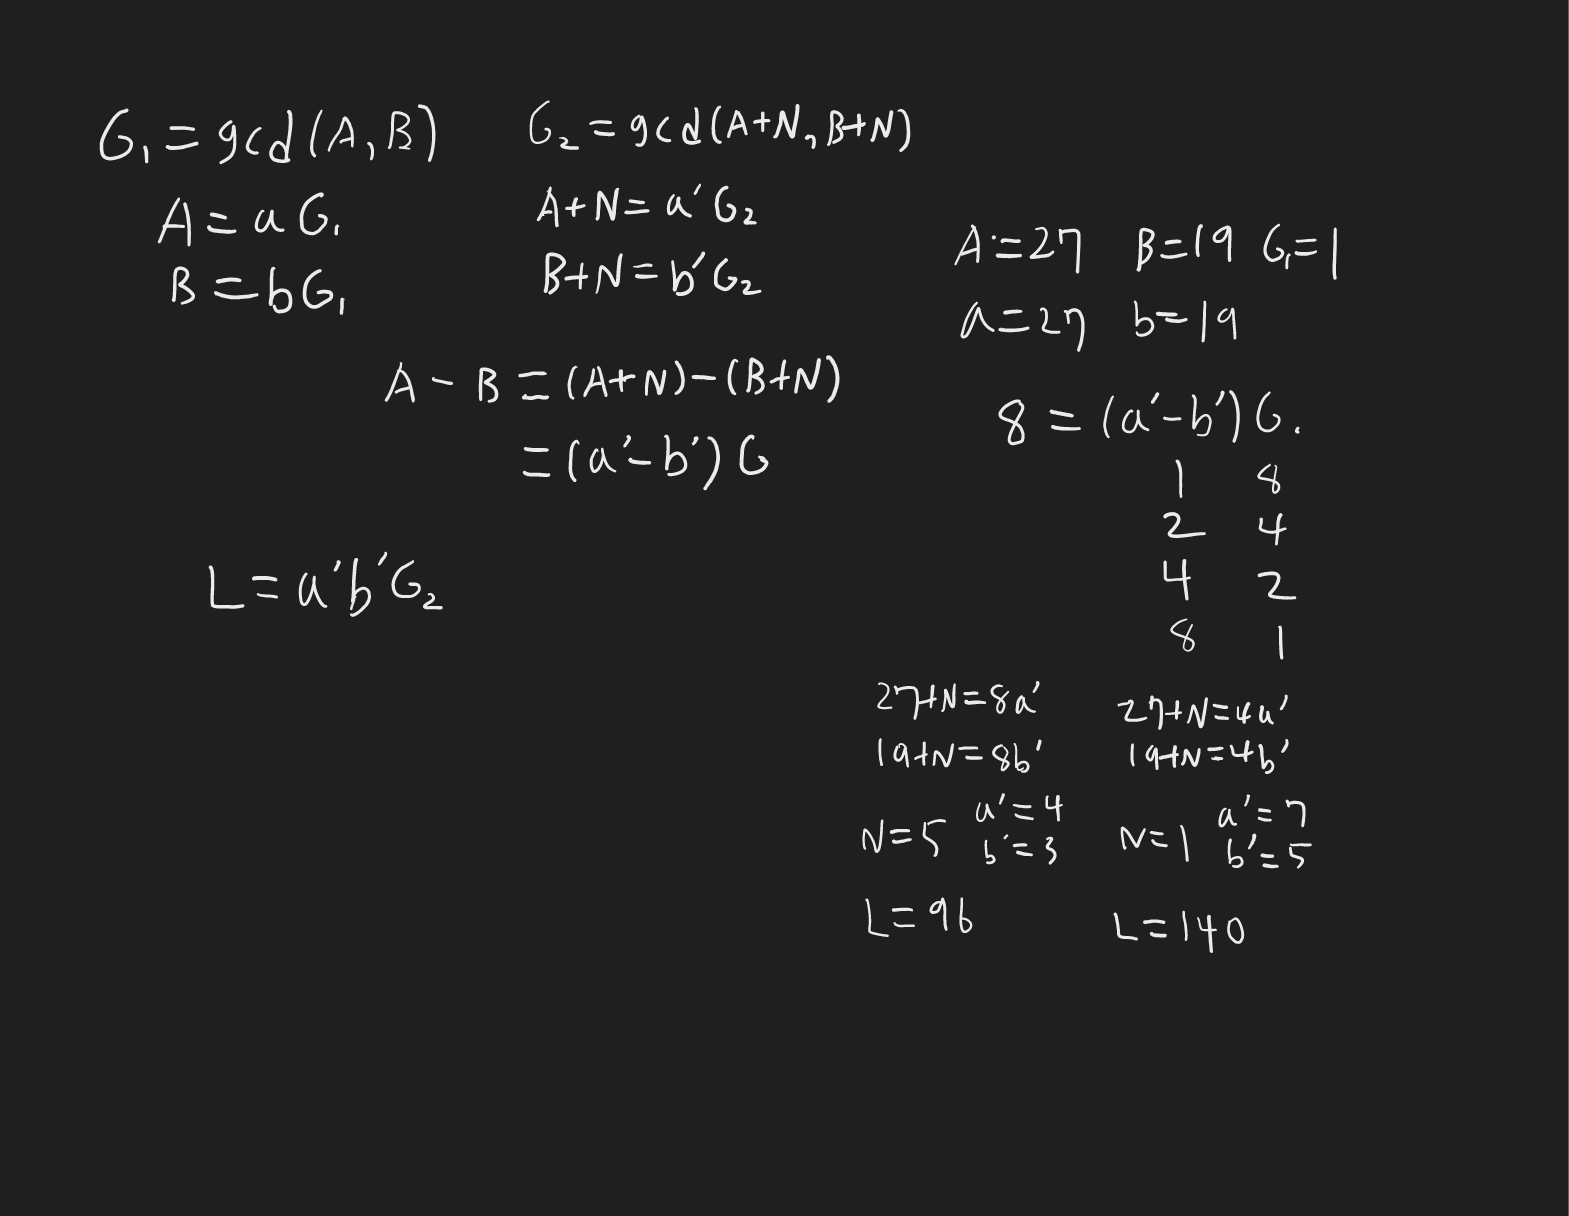 G₁ = gcd(A, B)
A = a G₁
B = b G₁
G₂ = gcd(A+N, B+N)
A+N = a' G₂
B+N = b' G₂
A - B = (A+N) - (B+N)
= (a' - b') G
L = a' b' G₂
A = 27 B = 19 G₁ = 1
a = 27 b = 19
8 = (a' - b') G.
1 8
2 4
4 2
8 1
27+N = 8a'
19+N = 8b'
N = 5 a' = 4
b' = 3
L = 96
27+N = 4a'
19+N = 4b'
N = 1 a' = 7
b' = 5
L = 140